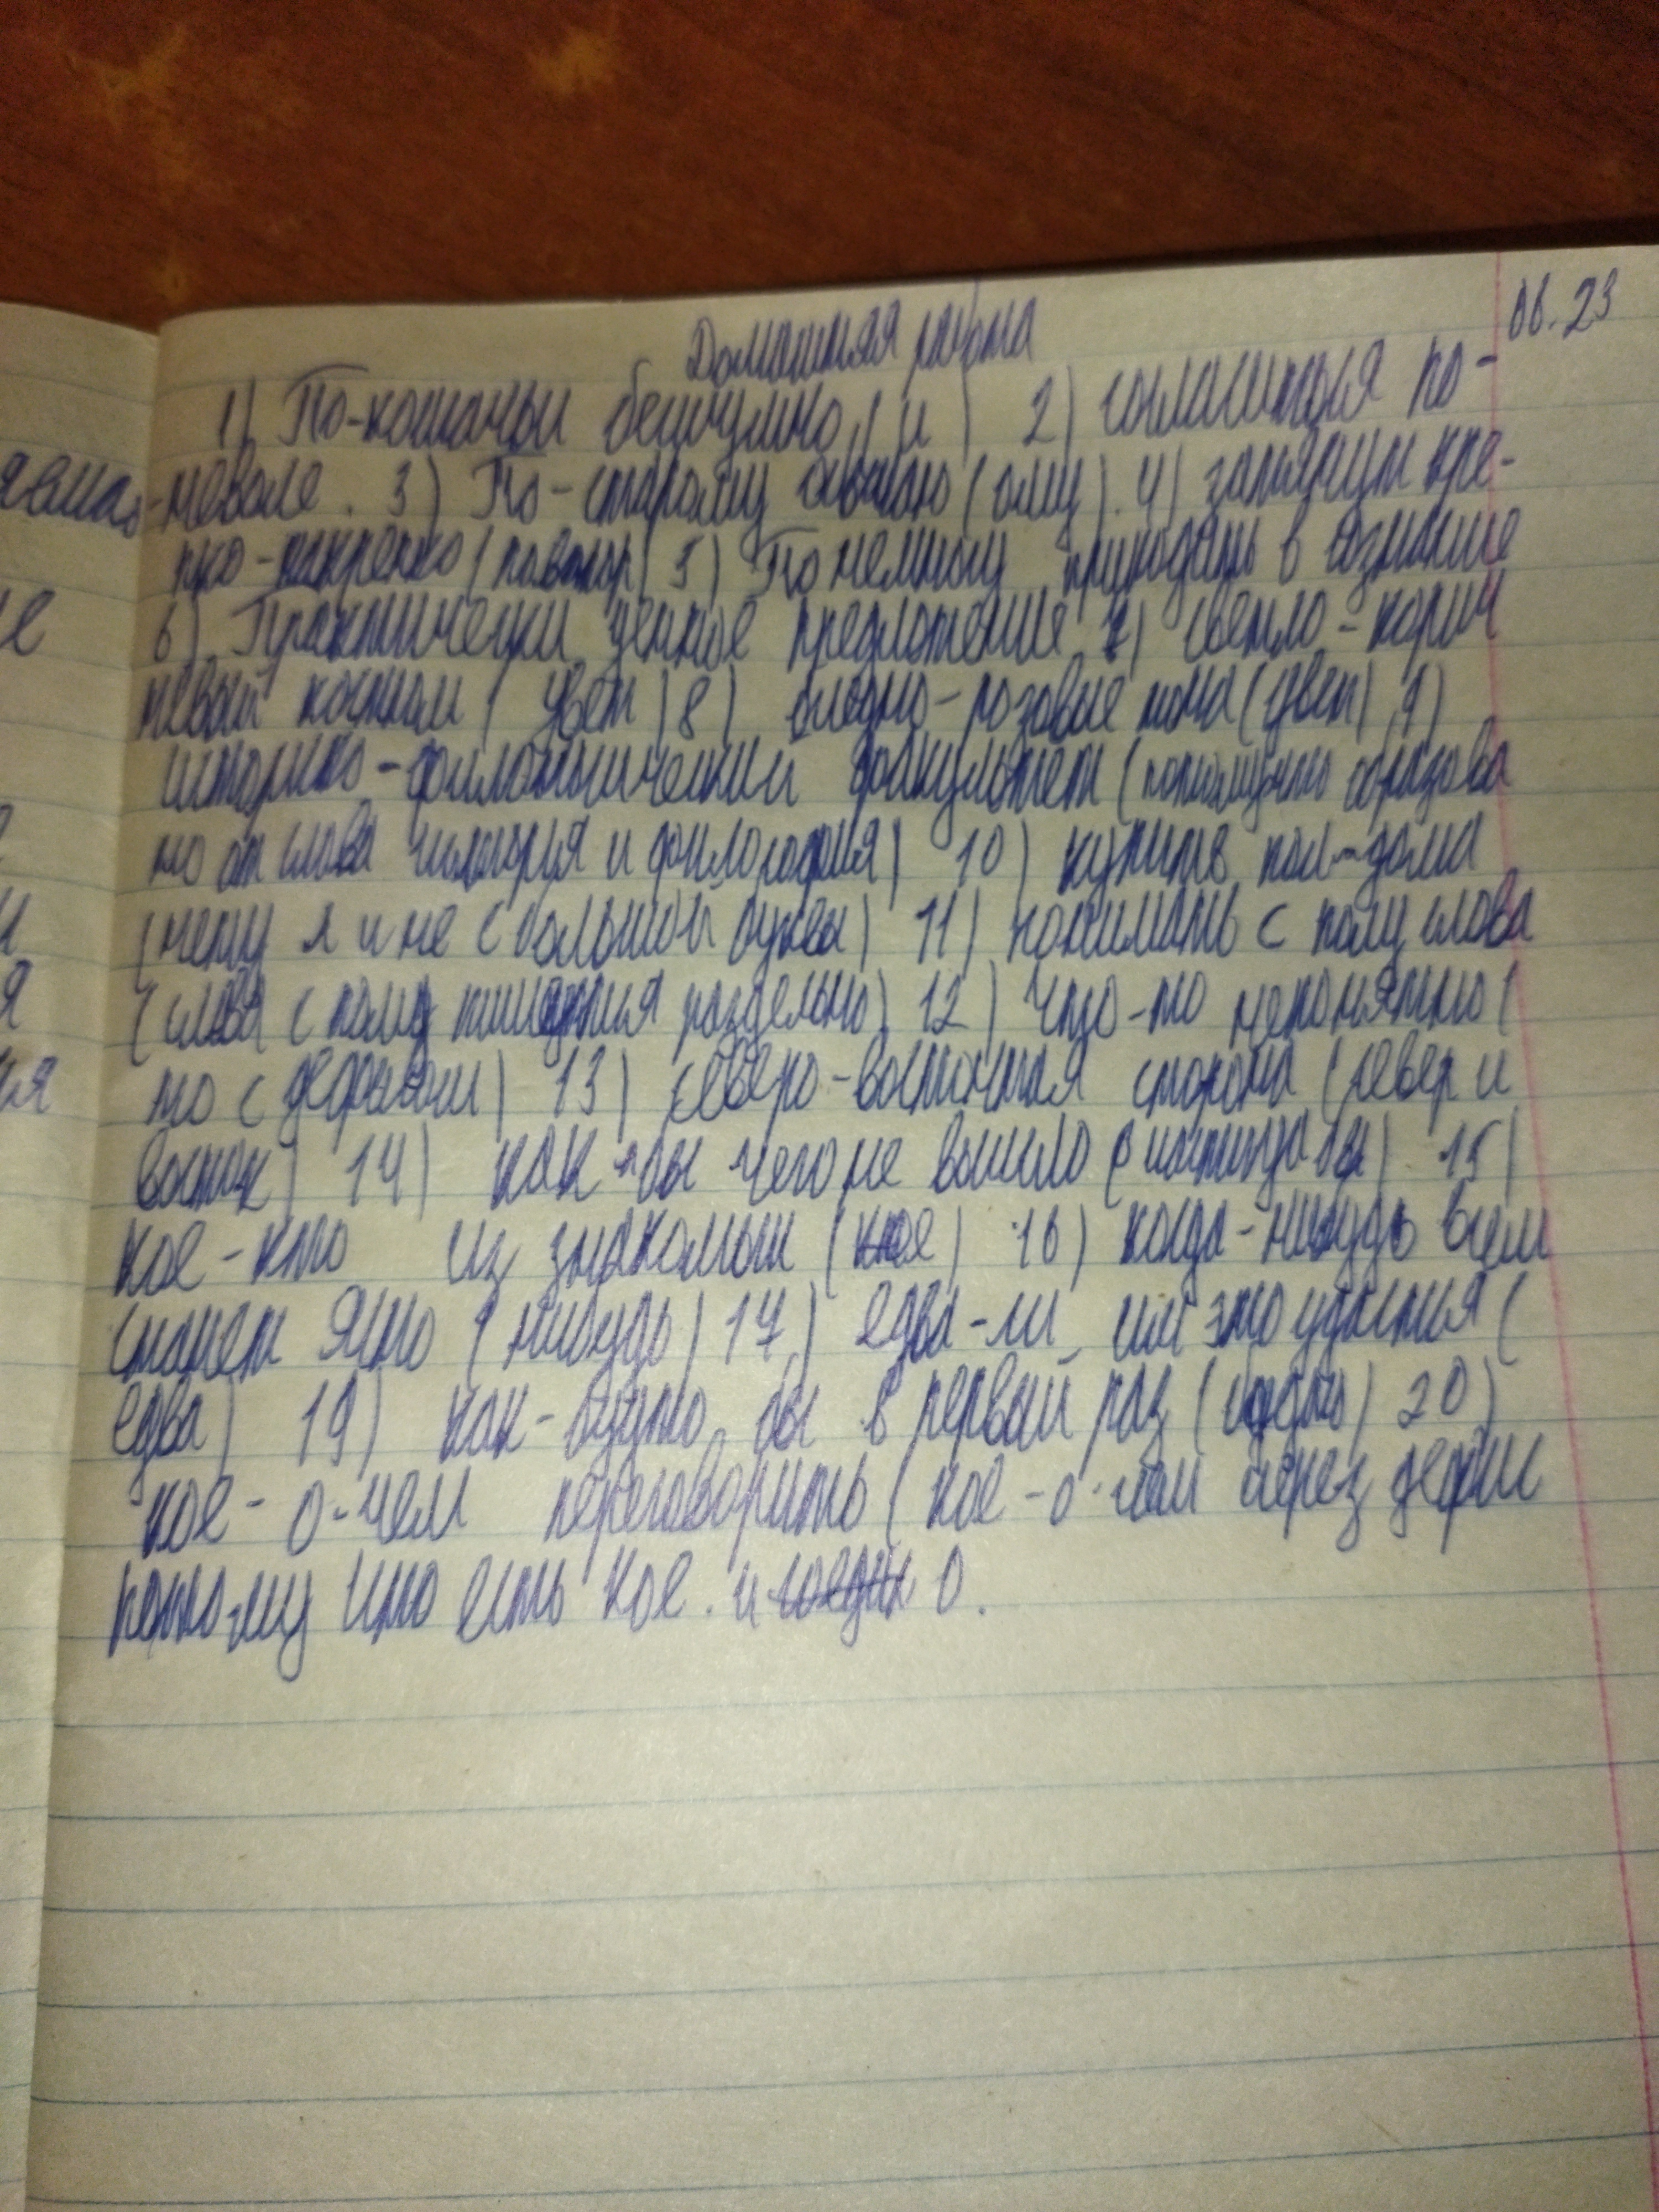 06.23
Домашняя работа
1) По-кошачьи бесшумно, ( и ) 2) согласиться по-
-неволе. 3) По-старому (ому). 4) затянут кре-
пко-накрепко (повтор) 5) Понемногу приходить в сознание
6) Практически ценное предложение 7) светло-корич
невый костюм ( цвет ) 8) бледно-розовые тона (цвет) 9)
историко-филологический факультет ( образова
но от слова история и философия) 10) купить пол-дома
(нету л и не с большой буквы) 11) понимать с полу слова
(слова с полу пишутся раздельно) 12) что-то непонятно (
то с дефисом) 13) северо-восточная сторона (север и
восток) 14) как-бы чего не вышло (частица бы) 15)
кое-кто из знакомых (кое) 16) когда-нибудь всем
станет ясно (нибудь) 17) едва-ли им это удастся (
едва) 19) как-будто бы в первый раз (будто) 20)
кое-о-чем переговорить ( кое-о-чем через дефис
потому что есть кое. и о.